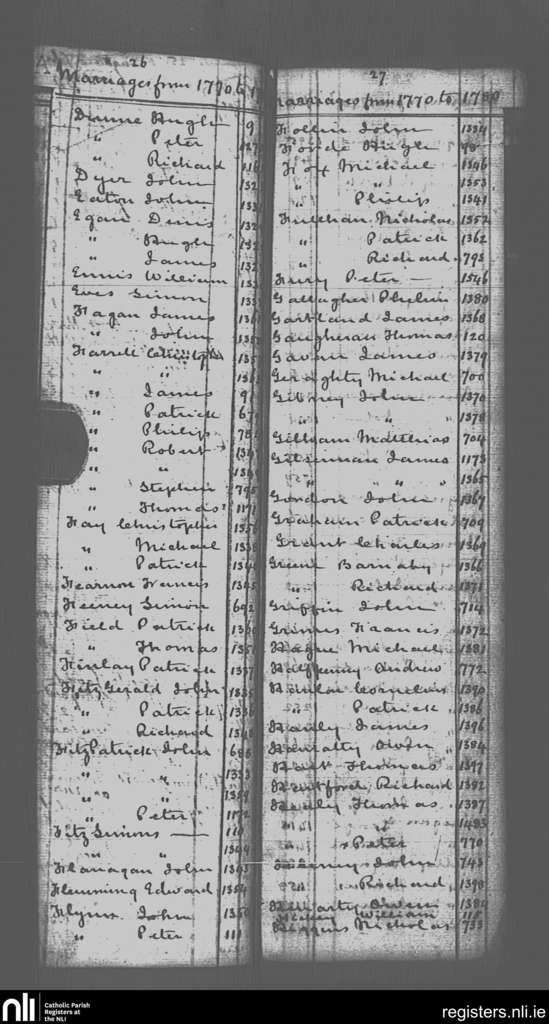 26
Marriages from 1770 to 1
Dunne Hugh 9
" Peter 127
" Richard 116
Dyer John 132
Eaton John 133
Egan Denis 132
" Hugh 132
" James 132
Ennis William 133
Eves Simon 133
Fagan James 136
" John 135
Farrell Christopher 135
" " 136
" James 9
" Patrick 67
" Philip 78
" Robert 134
" " 134
" Stephen 795
" Thomas 1171
Fay Christopher 1356
" Michael 1338
" Patrick 134
Fearnon Francis 1345
Feeney Simon 692
Field Patrick 1360
" Thomas 1351
Finlay Patrick 1357
FitzGerald John 1335
" Patrick 1336
" Richard 1348
FitzPatrick John 686
" " 1353
" " 1359
" Peter 1172
FitzSimons — 110
" " 1344
Flanagan John 1343
Flemming Edward 1354
Flynn John 1350
" Peter 111
27
Marriages from 1770 to 1780
Follin John 1334
Forde Hugh 90
Fox Michael 1346
" " 1353
" Philip 1341
Fullham Nicholas 1352
" Patrick 1362
" Richard 795
Fury Peter — 1346
Gallagher Phylim 1380
Gartland James 1368
Gaugheran Thomas 120
Gavan James 1379
Geraghty Michael 700
Gibney John 1370
" " 1378
Gillham Matthias 704
Gilsinnan James 1173
" " 1365
Gordon John 1367
Graham Patrick 709
Grant Charles 1369
Green Barnaby 1366
" Richard 1371
Griffin John 714
Grimes Francis 1372
Hague Michael 1381
Halfpenny Andrew 772
Hanlon Cornelius 1390
" Patrick 1386
Hanly James 1396
Hanratty Owen 1384
Hart Thomas 1397
Hartford Richard 1392
Healy Thomas 1387
" " 1403
" Peter 770
John 743
" Richard 1390
Owen 1384
William 118
Higgins Nicholas 733
nli
Catholic Parish
Registers at
the NLI
registers.nli.ie